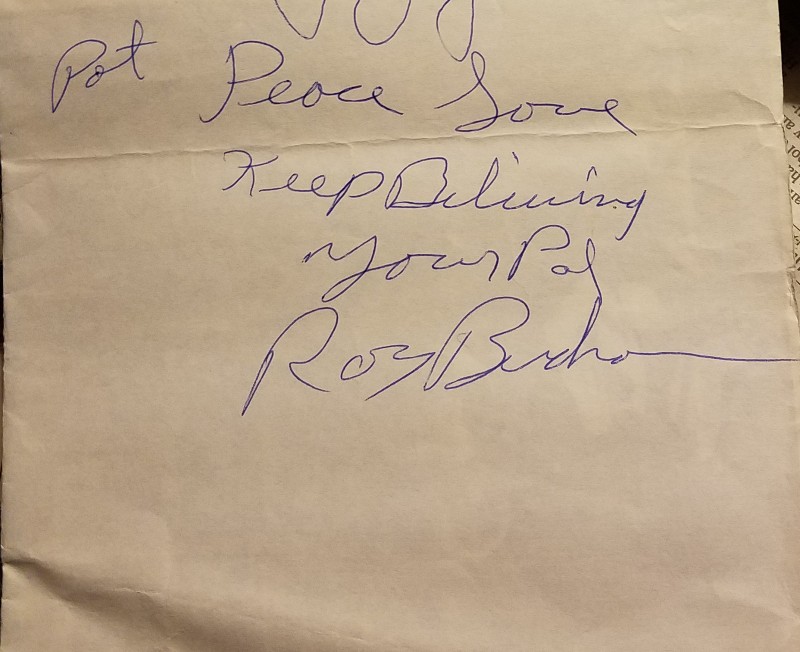 Pat Peace Love
Keep Beliving
Your Pal
Roy Buchanan